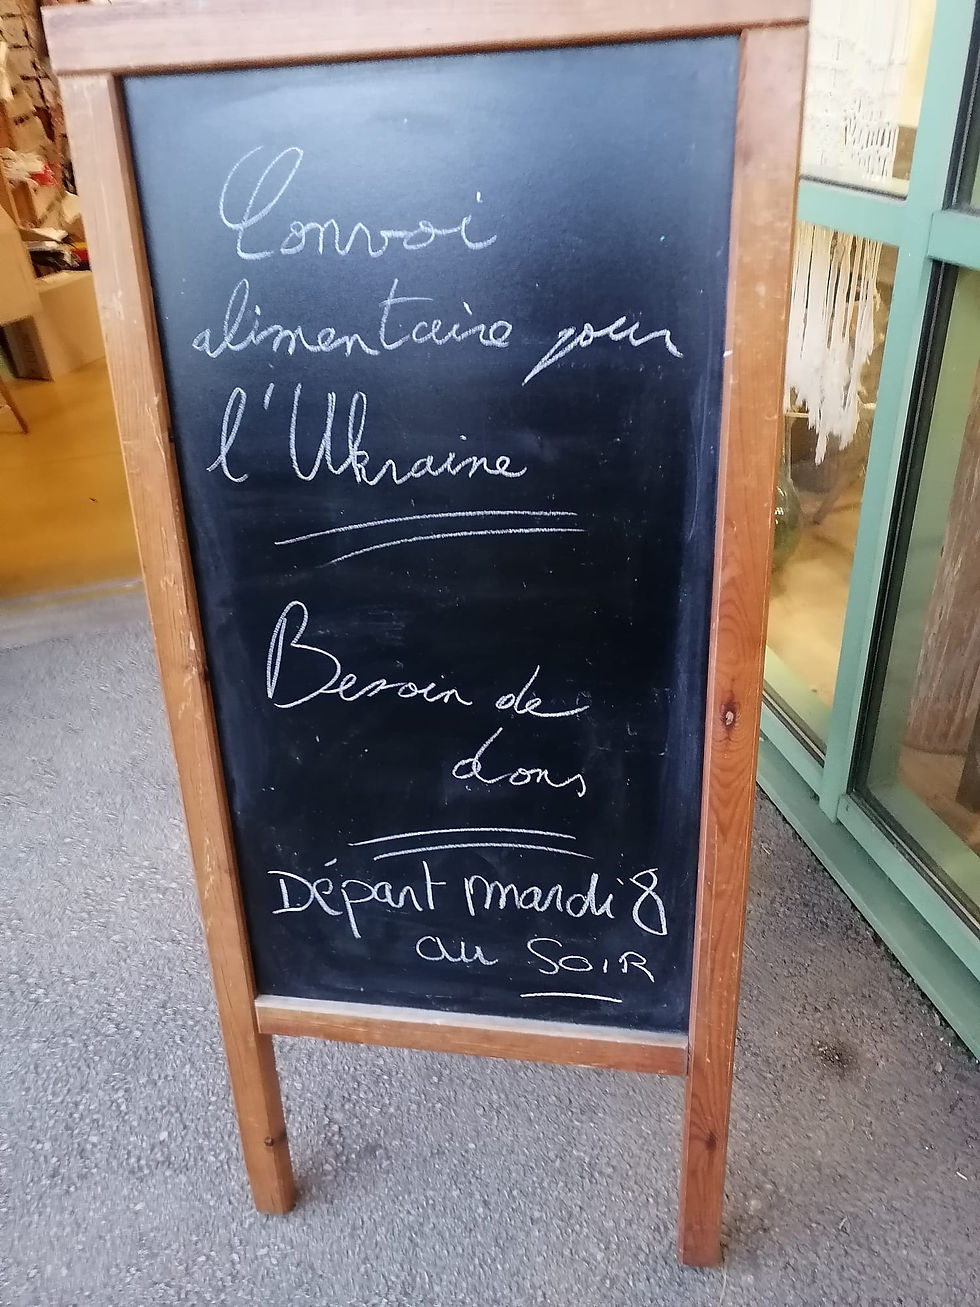 Convoi
alimentaire pour
l'Ukraine
Besoin de
dons
Départ mardi 8
au SOIR